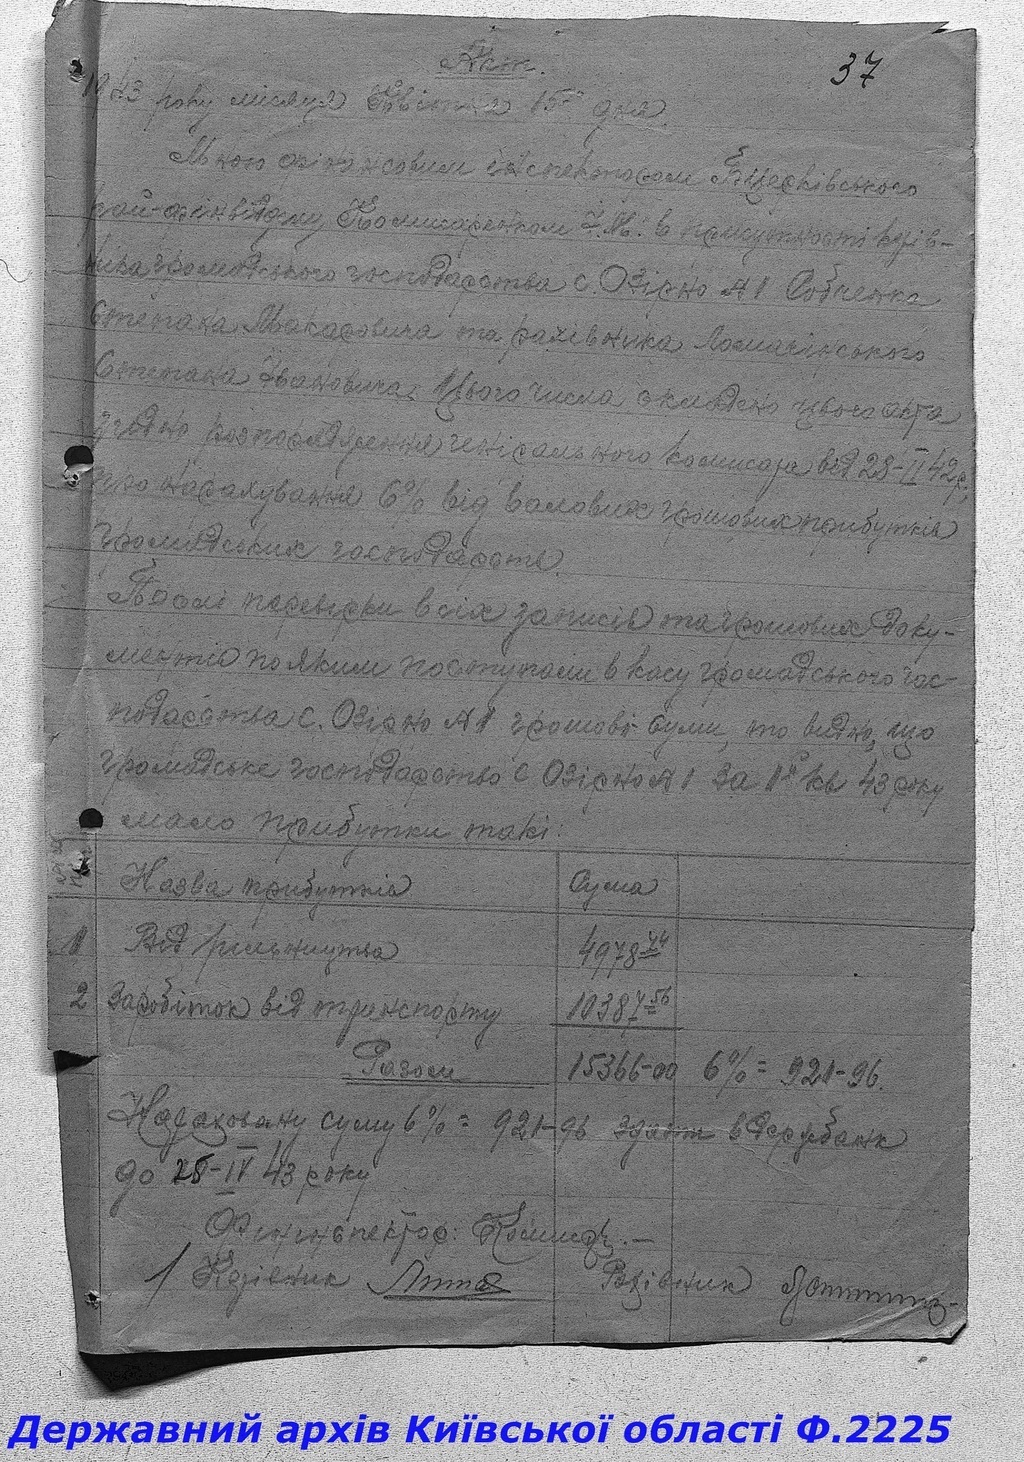 Акт.
37
1943 року місяця Квітня 15го дня.
Мною фінансовим інспектором Б.церківського
рай-фінвідділу Комисаренком І.М. в присутності керів-
ника громадського господарства с. Озірно №1 Собченка
Степана Макаровича та рахівника Ломачінського
Степана Івановича. Цього числа складено цього акта
згідно розпорядження генірального комисара від 28-II 42р.
про нарахування 6% від валових грошових прибутків
громадських господарств.
Після перевірки всіх записів та грошових доку-
ментів по яким поступали в касу громадського гос-
подарства с. Озірно №1 грошові суми, то видно, що
громадське господарство с Озірно №1 за 1й кв 43 року
мало прибутки такі:
Назва прибутків Сума
1 Від рільництва 4978-44
2 Заробіток від транспорту 10387-56
Разом 15366-00 6% = 921-96.
Нараховану суму 6% = 921-96 здати в Держбанк
до 25-IV 43 року
Фінінспектор:
Керівник Рахівник
Державний архів Київської області Ф.2225